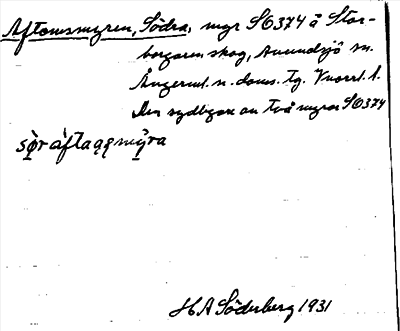 Aftonsmyren, Södra, myr SO374 å Stor-
borgaren skog, Anundsjö sn.
Ångerml. n. doms. tg. Vnorrl. l.
Den sydligare av två myrar SO374
H A Söderberg 1931